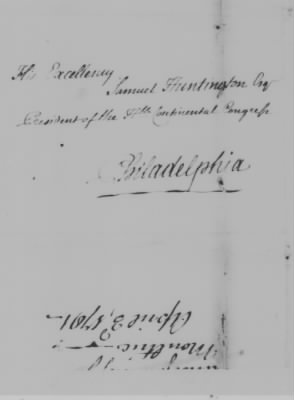 His Excellency
Samuel Huntington Esq
President of the Hble Continental Congress
Philadelphia
April 3, 1781